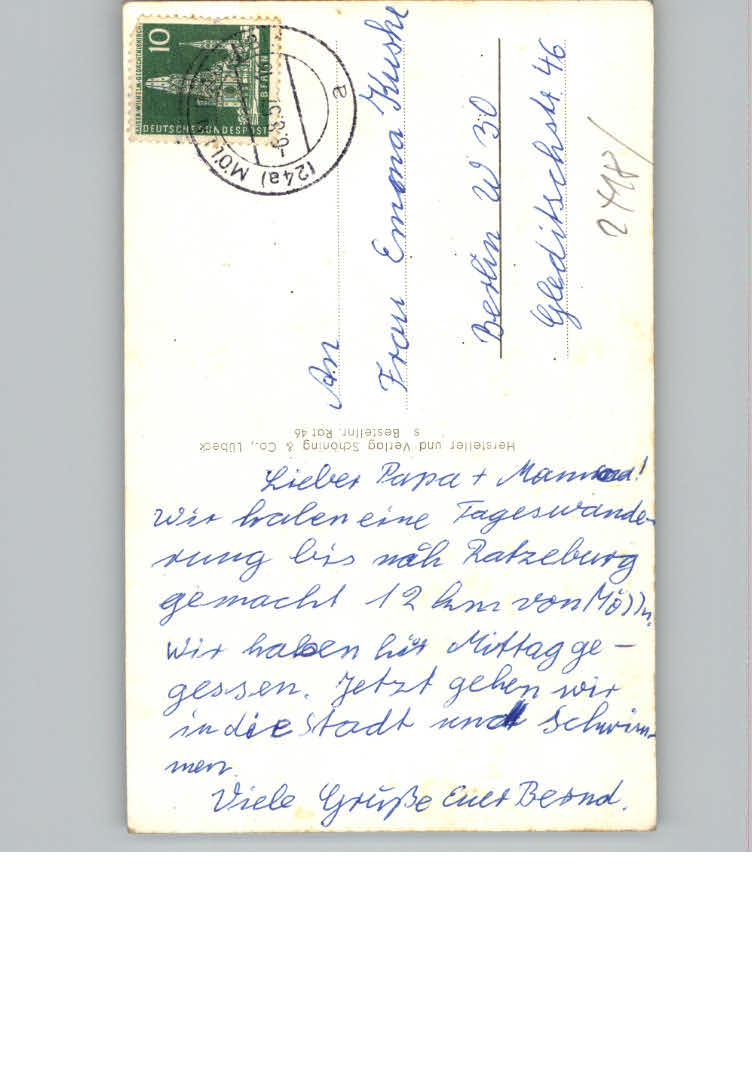 10
KAISER-WILHELM-GEDÄCHTNISKIRCHE
BERLIN
DEUTSCHE BUNDESPOST
(24a) MÖLLN
a
An
Frau Emma Kuske
Berlin W 30
Gleditschstr. 46
2418/
Hersteller und Verlag Schöning & Co., Lübeck
s Bestellnr. Rat 46
Lieber Papa + Mama!
Wir haben eine Tageswande-
rung bis nach Ratzeburg
gemacht 12 km von Mölln.
Wir haben hir Mittag ge-
gessen. Jetzt gehen wir
in die Stadt und Schwim-
men.
Viele Grüße Euer Bernd.